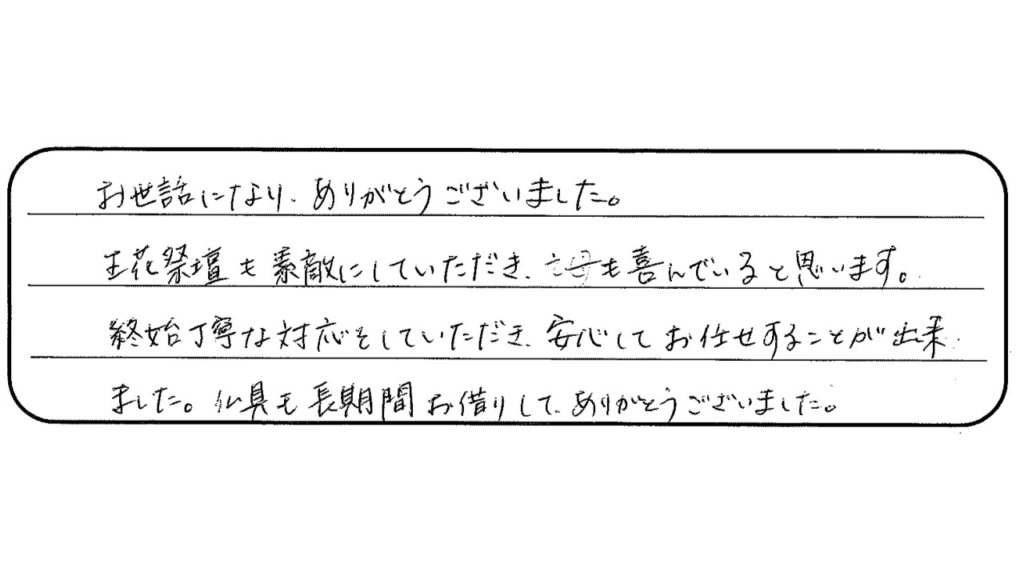 お世話になり、ありがとうございました。
生花祭壇も素敵にしていただき、母も喜んでいると思います。
終始丁寧な対応をしていただき、安心してお任せすることが出来
ました。仏具も長期間お借りして、ありがとうございました。